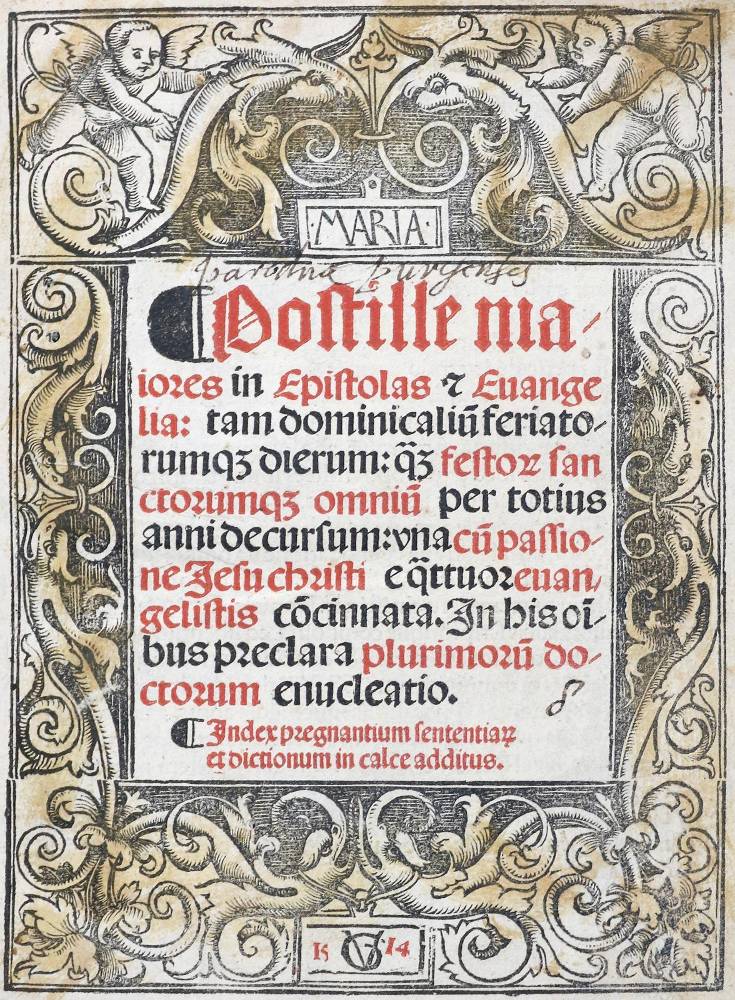 MARIA
Parochiæ purgensis
Postille ma/
iores in Epistolas ⁊ Euange
lia: tam dominicaliū feriato-
rumqꝫ dierum: q̄ꝫ festoꝝ san
ctorumqꝫ omniū per totius
anni decursum: vna cū passio-
ne Jesu christi e q̄ttuor euan/
gelistis cōcinnata. In his oī-
bus preclara plurimorū do-
ctorum enucleatio.
Index pregnantium sententiaꝝ
et dictionum in calce additus.
15 VG 14